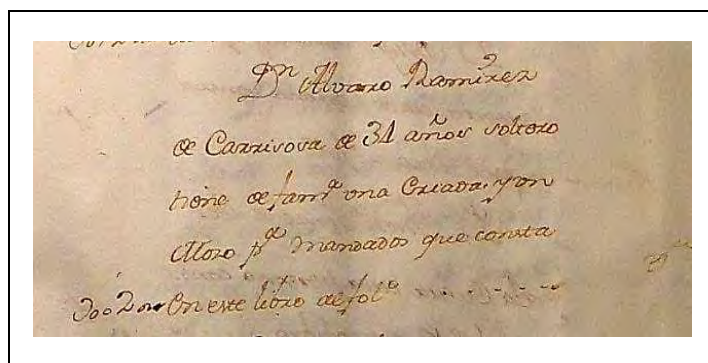 Dn Alvaro Ramirez
de Carrisosa de 31 años soltero
tiene de fama una Criada, y un
Mozo pa mandados que consta
En este libro de folo